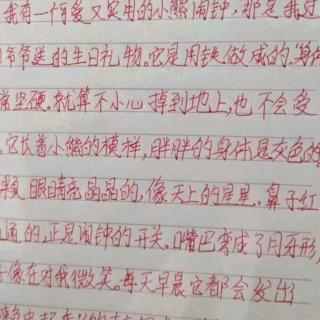 我有一个可爱又实用的小熊闹钟,那是我过
爷爷送的生日礼物。它是用铁做成的,身体
常坚硬。就算不小心掉到地上,也不会受
。它长着小熊的模样,胖胖的身体是灰色的
眼睛亮晶晶的,像天上的星星。鼻子红
通的,正是闹钟的开关。嘴巴弯成了月牙形,
像在对我微笑。每天早晨它都会发出